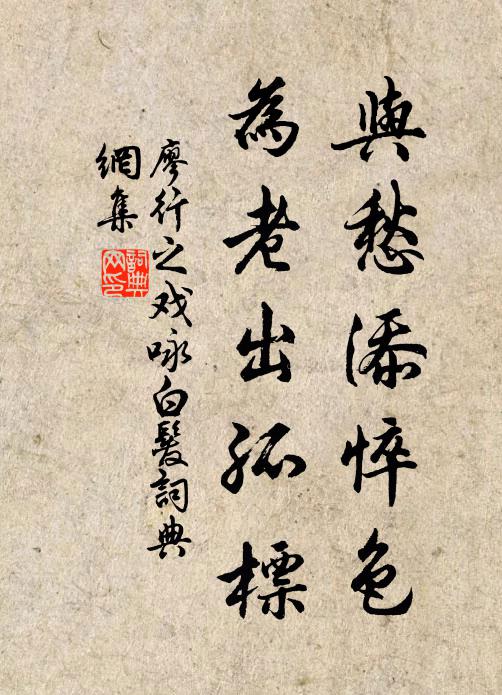 與愁添悴色
為老出孤標
廖行之戏咏白髮詞典
網集
詞典网印